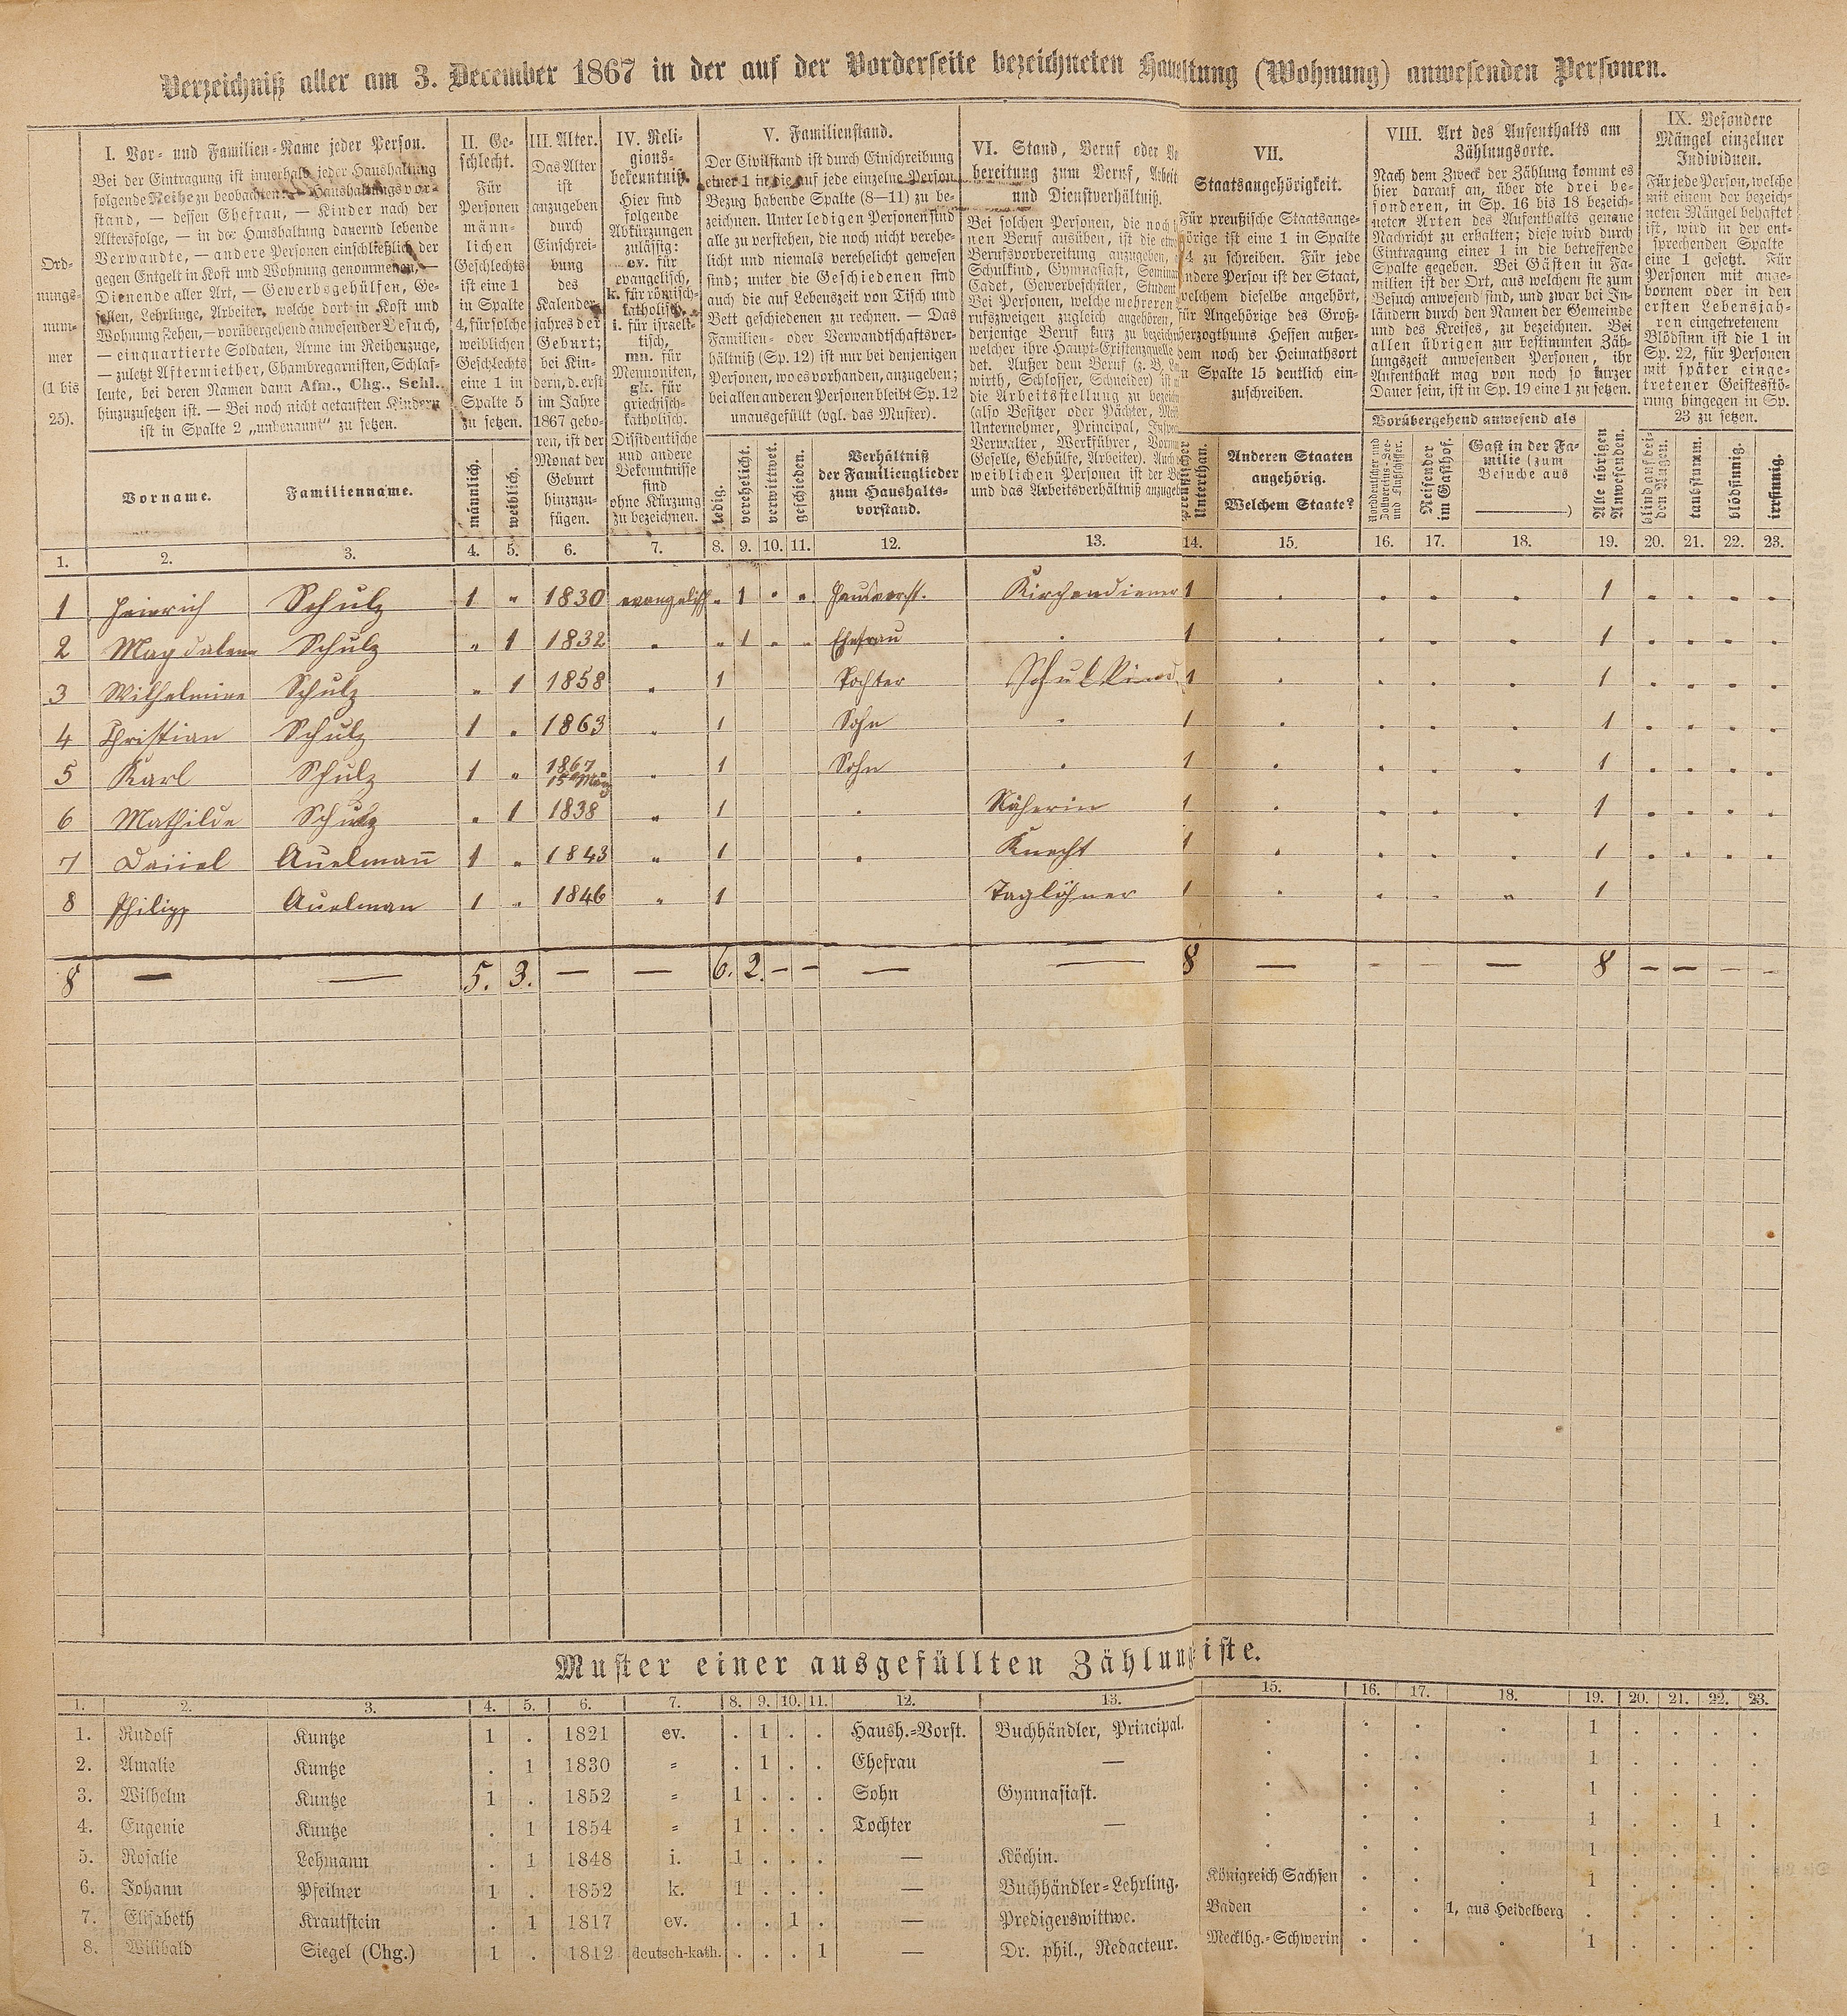 Verzeichniß aller am 3. December 1867 in der auf der Vorderseite bezeichneten Haushaltung (Wohnung) anwesenden Personen.
Ord-
nungs-
num-
mer
(1 bis
25).
I. Vor- und Familien-Name jeder Person.
Bei der Eintragung ist innerhalb jeder Haushaltung
folgende Reihe zu beobachten: — Haushaltungsvor-
stand, — dessen Ehefrau, — Kinder nach der
Altersfolge, — in der Haushaltung dauernd lebende
Verwandte, — andere Personen einschließlich der
gegen Entgelt in Kost und Wohnung genommenen, —
Dienende aller Art, — Gewerbsgehülfen, Ge-
sellen, Lehrlinge, Arbeiter, welche dort in Kost und
Wohnung stehen, — vorübergehend anwesender Besuch,
— einquartierte Soldaten, Arme im Reihenzuge,
— zuletzt Aftermiether, Chambregarnisten, Schlaf-
leute, bei deren Namen dann Afm., Chg., Schl.
hinzuzusetzen ist. — Bei noch nicht getauften Kindern
ist in Spalte 2 „unbenannt“ zu setzen.
Vorname.
Familienname.
II. Ge-
schlecht.
Für
Personen
männ-
lichen
Geschlechts
ist eine 1
in Spalte
4, für solche
weiblichen
Geschlechts
eine 1 in
Spalte 5
zu setzen.
männlich.
weiblich.
III. Alter.
Das Alter
ist
anzugeben
durch
Einschrei-
bung
des
Kalender-
jahres der
Geburt;
bei Kin-
dern, d. erst
im Jahre
1867 gebo-
ren, ist der
Monat der
Geburt
hinzuzu-
fügen.
IV. Reli-
gions-
bekenntniß.
Hier sind
folgende
Abkürzungen
zulässig:
ev. für
evangelisch,
k. für römisch-
katholisch,
i. für israeli-
tisch,
mn. für
Mennoniten,
gk. für
griechisch-
katholisch.
Dissidentische
und andere
Bekenntnisse
sind
ohne Kürzung
zu bezeichnen.
V. Familienstand.
Der Civilstand ist durch Einschreibung
einer 1 in die auf jede einzelne Person
Bezug habende Spalte (8—11) zu be-
zeichnen. Unter ledigen Personen sind
alle zu verstehen, die noch nicht verehe-
licht und niemals verehelicht gewesen
sind; unter die Geschiedenen sind
auch die auf Lebenszeit von Tisch und
Bett geschiedenen zu rechnen. — Das
Familien- oder Verwandtschaftsver-
hältniß (Sp. 12) ist nur bei denjenigen
Personen, wo es vorhanden, anzugeben;
bei allen anderen Personen bleibt Sp. 12
unausgefüllt (vgl. das Muster).
ledig.
verehelicht.
verwittwet.
geschieden.
Verhältniß
der Familienglieder
zum Haushalts-
vorstand.
VI. Stand, Beruf oder
bereitung zum Beruf, Arbeit
und Dienstverhältniß.
Bei solchen Personen, die noch
nen Beruf ausüben, ist die
Berufsvorbereitung anzugeben,
Schulkind, Gymnasiast,
Cadet, Gewerbeschüler, Student
Bei Personen, welche mehreren
rufszweigen zugleich angehören,
derjenige Beruf kurz zu
welcher ihre Haupt-Existenzquelle
det. Außer dem Beruf (z. B.
wirth, Schlosser, Schneider) ist
die Arbeitsstellung zu
(also Besitzer oder Pächter,
Unternehmer, Principal,
Verwalter, Werkführer,
Geselle, Gehülfe, Arbeiter). Auch
weiblichen Personen ist der
und das Arbeitsverhältniß
VII.
Staatsangehörigkeit.
Für preußische Staatsange-
hörige ist eine 1 in Spalte
14 zu schreiben. Für jede
andere Person ist der Staat,
welchem dieselbe angehört,
für Angehörige des Groß-
herzogthums Hessen außer-
dem noch der Heimathsort
in Spalte 15 deutlich ein-
zuschreiben.
Preußischer
Unterthan.
Anderen Staaten
angehörig.
Welchem Staate?
VIII. Art des Aufenthalts am
Zählungsorte.
Nach dem Zweck der Zählung kommt es
hier darauf an, über die drei be-
sonderen, in Sp. 16 bis 18 bezeich-
neten Arten des Aufenthalts genaue
Nachricht zu erhalten; diese wird durch
Eintragung einer 1 in die betreffende
Spalte gegeben. Bei Gästen in Fa-
milien ist der Ort, aus welchem sie zum
Besuch anwesend sind, und zwar bei In-
ländern durch den Namen der Gemeinde
und des Kreises, zu bezeichnen. Bei
allen übrigen zur bestimmten Zäh-
lungszeit anwesenden Personen, ihr
Aufenthalt mag von noch so kurzer
Dauer sein, ist in Sp. 19 eine 1 zu setzen.
Vorübergehend anwesend als
Norddeutscher und
Zollvereins-See-
und Flußschiffer.
Reisender
im Gasthof.
Gast in der Fa-
milie (zum
Besuche aus
)
Alle übrigen
Anwesenden.
IX. Besondere
Mängel einzelner
Individuen.
Für jede Person, welche
mit einem der bezeich-
neten Mängel behaftet
ist, wird in der ent-
sprechenden Spalte
eine 1 gesetzt. Für
Personen mit ange-
bornem oder in den
ersten Lebensjah-
ren eingetretenem
Blödsinn ist die 1 in
Sp. 22, für Personen
mit später einge-
tretener Geistesstö-
rung hingegen in Sp.
23 zu setzen.
blind auf bei-
den Augen.
taubstumm.
blödsinnig.
irrsinnig.
1. 2. 3. 4. 5. 6. 7. 8. 9. 10. 11. 12. 13. 14. 15. 16. 17. 18. 19. 20. 21. 22. 23.
1 Heinrich Schulz 1 „ 1830 evangelisch „ 1 „ „ Hausvorst. Kirchendiener 1 . . . . 1 . . . .
2 Magdalena Schulz „ 1 1832 „ „ 1 „ „ Ehefrau . 1 . . . . 1 . . . .
3 Wilhelmine Schulz „ 1 1858 „ 1 Tochter Schulkind 1 . . . . 1 . . . .
4 Christian Schulz 1 „ 1863 „ 1 Sohn . 1 . . . . 1 . . . .
5 Karl Schulz 1 „ 1867 15 März „ 1 Sohn . 1 . . . . 1 . . . .
6 Mathilde Schulz „ 1 1838 „ 1 . Näherin 1 . . . . 1 . . . .
7 Daniel Auelmañ 1 „ 1843 „ 1 . Knecht 1 . . . . 1 . . . .
8 Philipp Auelman 1 „ 1846 „ 1 Taglöhner 1 . . . „ 1
8 — — 5. 3. — — 6. 2. — — — — 8 — — — — 8 — — — —
Muster einer ausgefüllten Zählungsliste.
1. 2. 3. 4. 5. 6. 7. 8. 9. 10. 11. 12. 13. 15. 16. 17. 18. 19. 20. 21. 22. 23.
1. Rudolf Kuntze 1 . 1821 ev. . 1 . . Haush.=Vorst. Buchhändler, Principal. . . . . 1 . . . .
2. Amalie Kuntze . 1 1830 = . 1 . . Ehefrau — . . . . 1 . . . .
3. Wilhelm Kuntze 1 . 1852 = 1 . . . Sohn Gymnasiast. . . . . 1 . . . .
4. Eugenie Kuntze . 1 1854 = 1 . . . Tochter — . . . . 1 . . 1 .
5. Rosalie Lehmann . 1 1848 i. 1 . . . — Köchin. . . . . 1 . . . .
6. Johann Pfeilner 1 . 1852 k. 1 . . . — Buchhändler=Lehrling. Königreich Sachsen . . . 1 . . . .
7. Elisabeth Krautstein . 1 1817 ev. . . 1 . — Predigerswittwe. Baden . . 1, aus Heidelberg . . . . .
8. Wilibald Siegel (Chg.) 1 . 1812 deutsch-kath. . . . 1 — Dr. phil., Redacteur. Mecklbg.=Schwerin . . . 1 . . . .